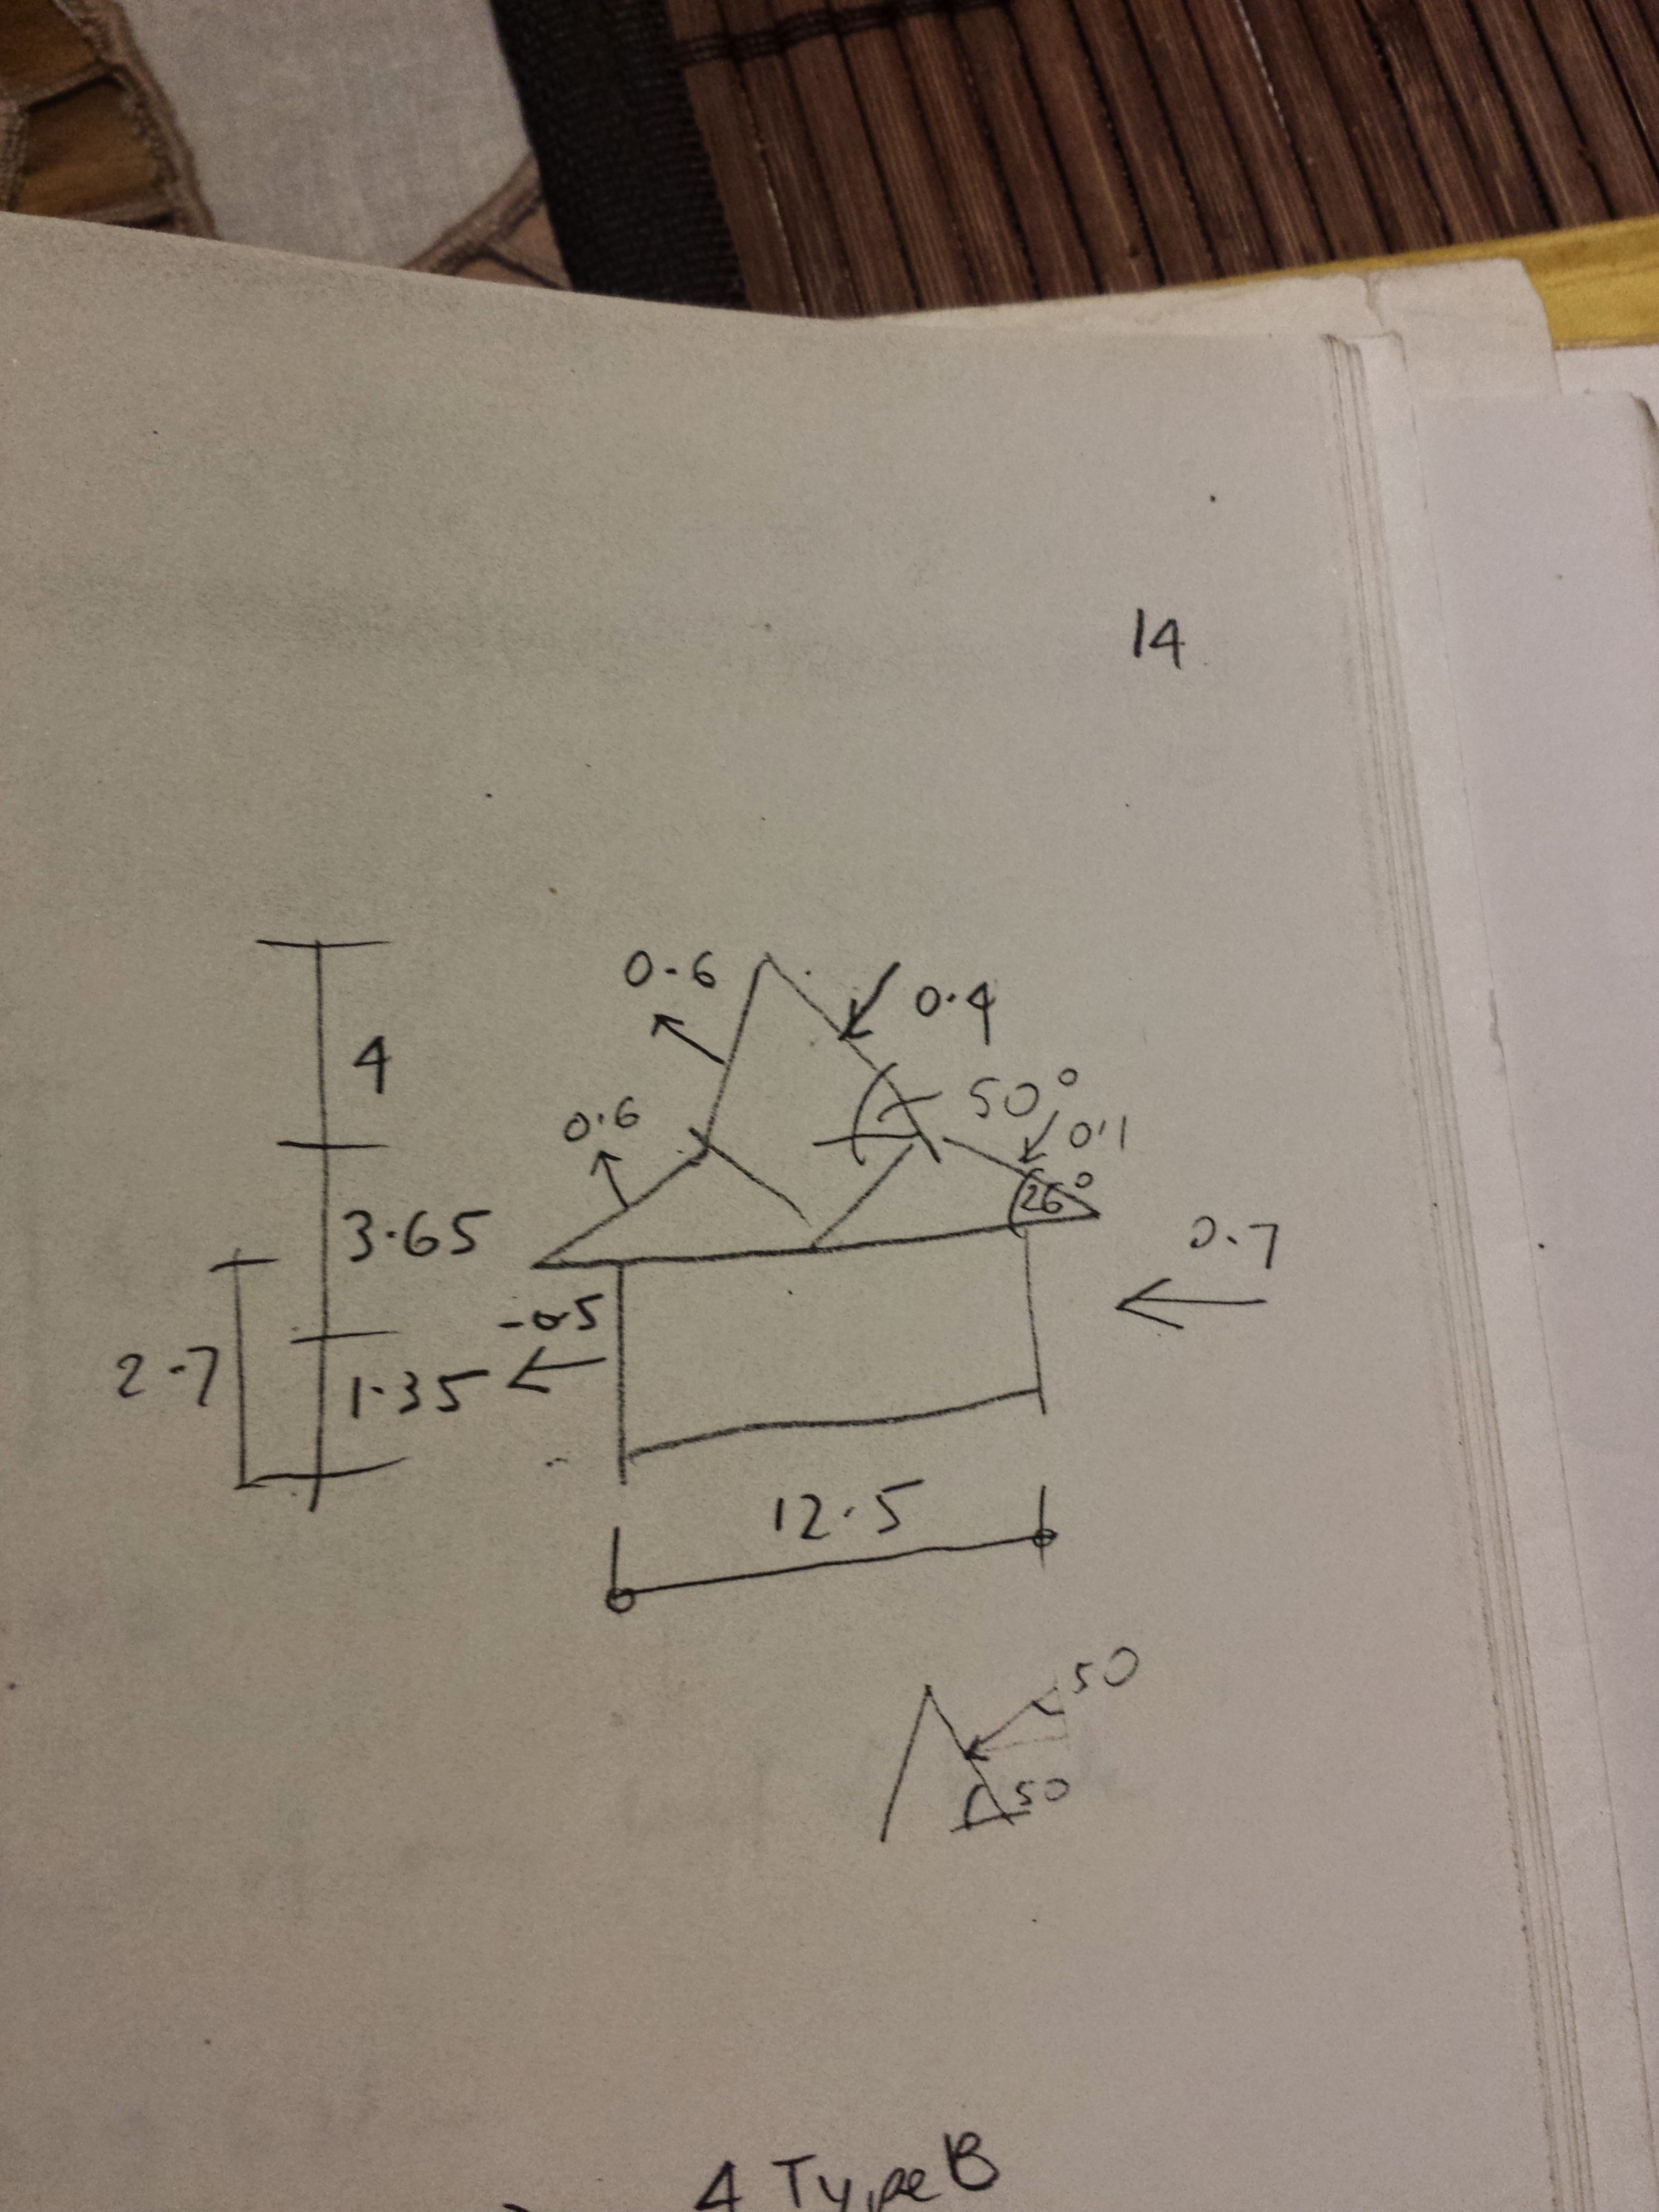 14
0.6
0.4
4
50°
0.6
0.1
26°
3.65
0.7
-0.5
2.7
1.35
12.5
50
50
4 Type B